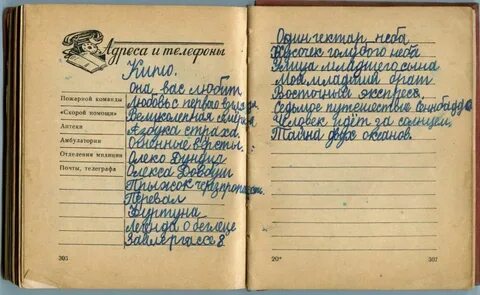 Адреса и телефоны
Кино.
Она вас любит
Пожарной команды
Любовь с первого взгляда
«Скорой помощи»
Великолепная
Аптеки
Азбука страха
Амбулатории
Огненные версты
Отделения милиции
Олеко Дундич
Почты, телеграфа
Олекса Довбуш
Прыжок через пропасть
Перевал
Фуртуна
Легенда о беглеце
8
305
Один гектар неба
Кусочек голубого неба
Улица младшего сына
Мой младший брат
Восточный экспресс.
Седьмое путешествие Синбада
Человек идёт за солнцем
Тайна двух океанов.
20*
307